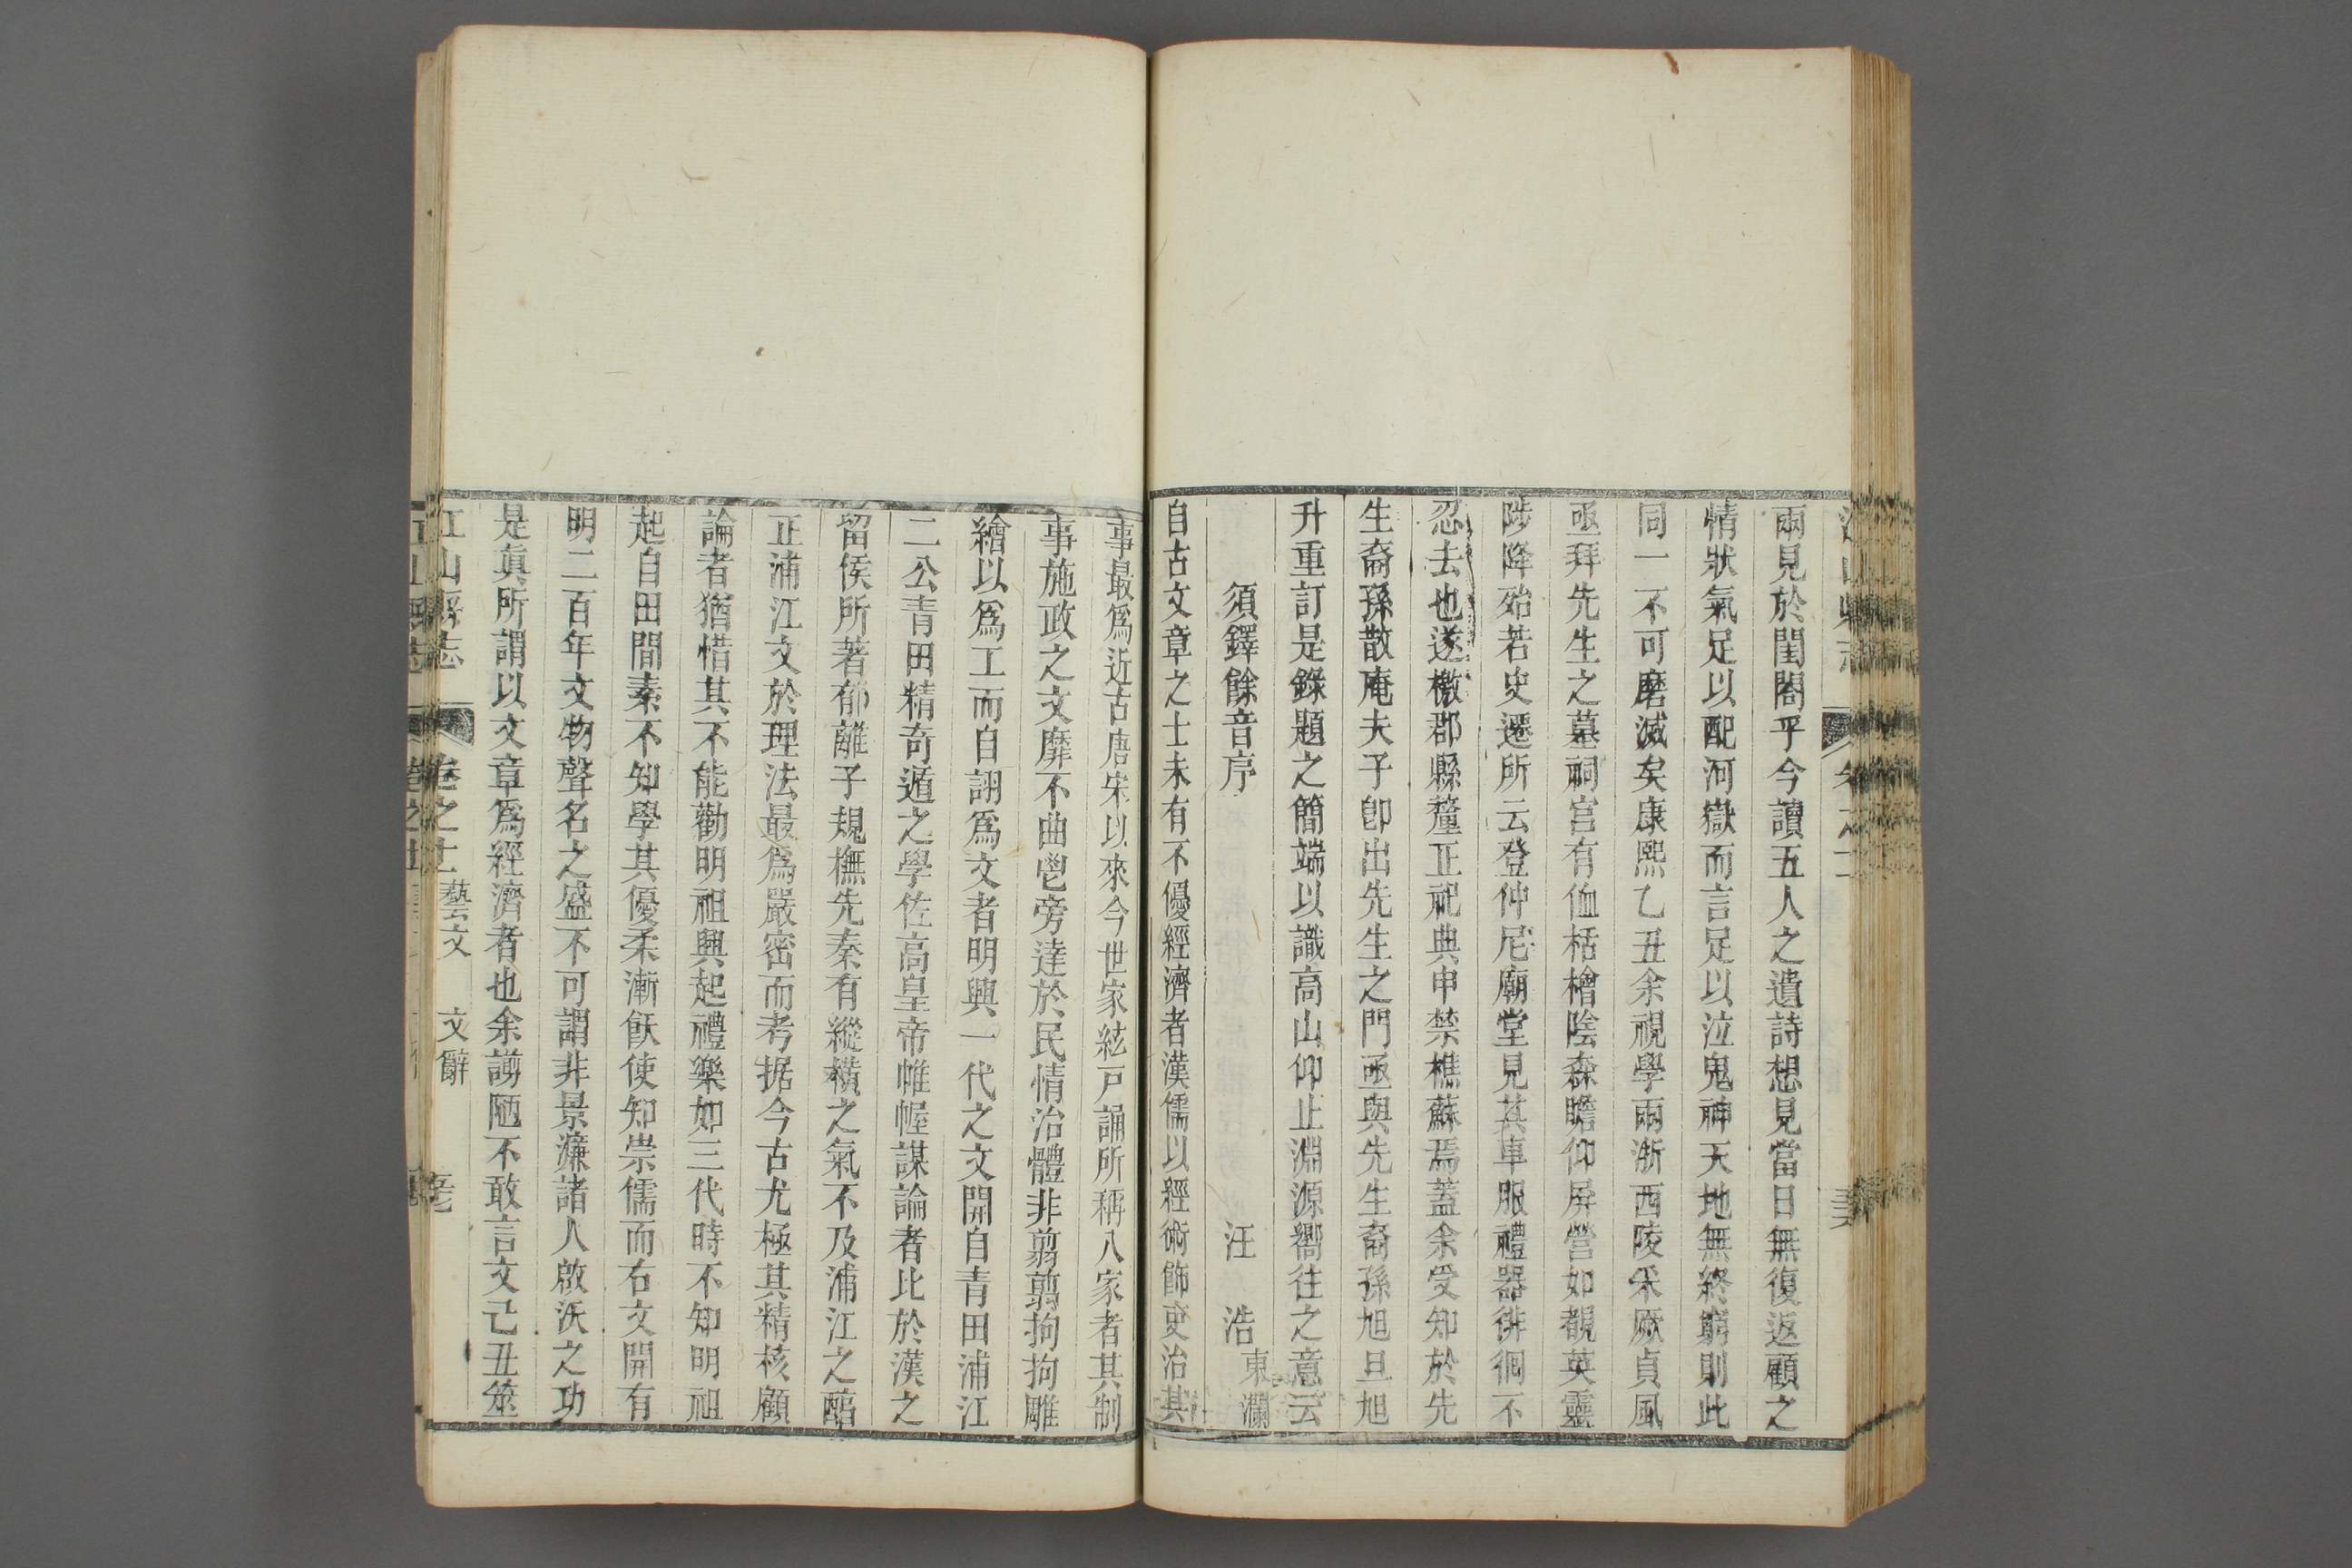 雨見於閨閤乎今讀五人之遺詩想見當日無復返顧之
情狀氣足以配河嶽而言足以泣鬼神天地無終窮則此
同一不可磨滅矣康熙乙丑余視學兩浙西陵采厥貞風
亟拜先生之墓祠宫有侐栝檜陰森瞻仰屏營如覩英靈
陟降殆若史遷所云登仲尼廟堂見其車服禮器徘徊不
忍去也遂檄郡縣釐正祀典申禁樵蘇焉蓋余受知於先
生裔孫散庵夫子卽出先生之門亟與先生裔孫旭旦旭
升重訂是錄題之簡端以識高山仰止淵源嚮往之意云
須鐸餘音序 汪浩 東瀾
自古文章之士未有不優經濟者漢儒以經術飾吏治其
事最爲近古唐宋以來今世家絃戸誦所稱八家者其制
事施政之文靡不曲鬯旁達於民情治體非翦翦拘拘雕
繪以爲工而自詡爲文者明興一代之文開自青田浦江
二公青田精奇遁之學佐高皇帝帷幄謀論者比於漢之
留侯所著郁離子規橅先秦有縱橫之氣不及浦江之醕
正浦江文於理法最爲嚴密而考据今古尤極其精核顧
論者猶惜其不能勸明祖興起禮樂如三代時不知明祖
起自田間素不知學其優柔漸飫使知崇儒而右文開有
明二百年文物聲名之盛不可謂非景濂諸人啟沃之功
是眞所謂以文章爲經濟者也余謭陋不敢言文己丑筮
江山縣志 卷之十二 藝文 文辭